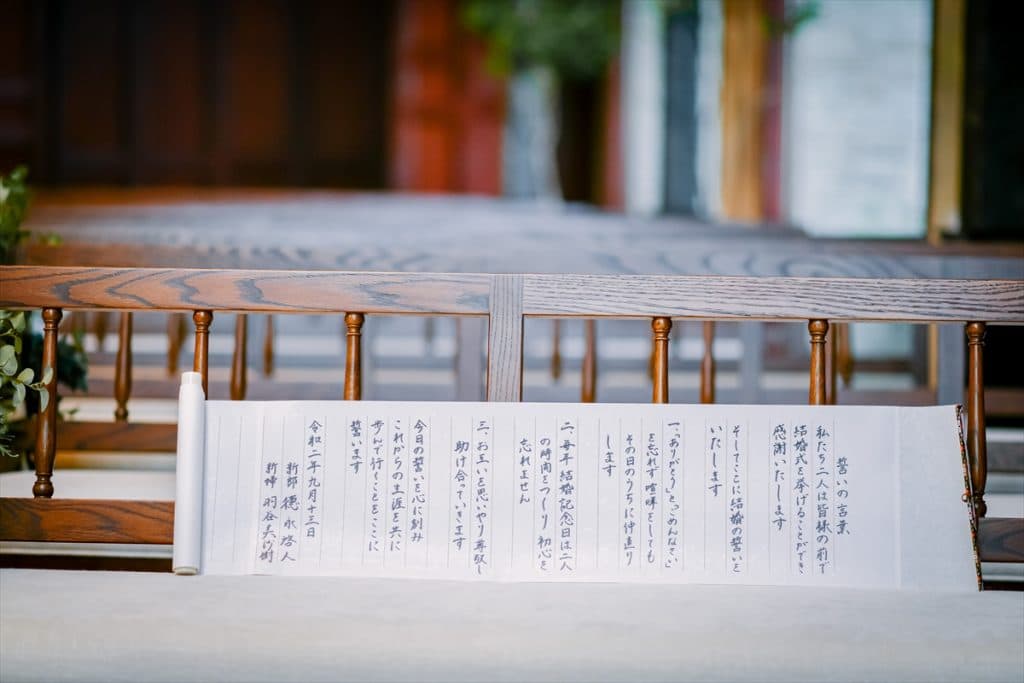 誓いの言葉
私たち二人は皆様の前で
結婚式を挙げることができ
感謝いたします
そしてここに結婚の誓いを
いたします
一、「ありがとう」と「ごめんなさい」
を忘れず喧嘩をしても
その日のうちに仲直り
します
二、毎年結婚記念日は二人
の時間をつくり初心を
忘れません
三、お互いを思いやり尊敬し
助け合っていきます
今日の誓いを心に刻み
これからの生涯を共に
歩んで行くことをここに
誓います
令和二年九月十三日
新郎 穂永 啓人
新婦 羽谷